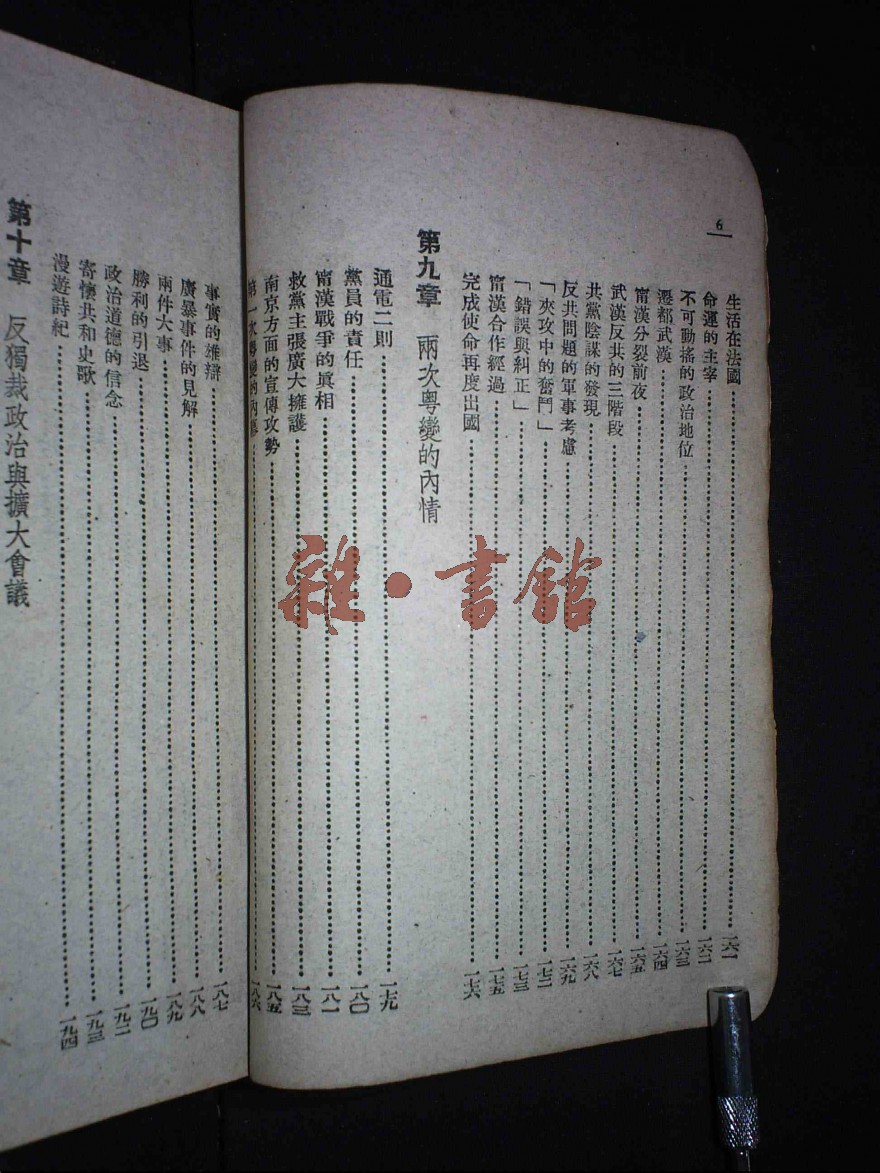 6
生活在法國⋯⋯一六一
命運的主宰⋯⋯一六二
不可動搖的政治地位⋯⋯一六三
遷都武漢⋯⋯一六四
甯漢分裂前夜⋯⋯一六五
武漢反共的三階段⋯⋯一六七
共黨陰謀的發現⋯⋯一六八
反共問題的軍事考慮⋯⋯一六九
「夾攻中的奮鬥」⋯⋯一七二
「錯誤與糾正」⋯⋯一七三
甯漢合作經過⋯⋯一七五
完成使命再度出國⋯⋯一七六
第九章 兩次粵變的內情
通電二則⋯⋯一七九
黨員的責任⋯⋯一八〇
甯漢戰爭的眞相⋯⋯一八一
救黨主張廣大擁護⋯⋯一八三
南京方面的宣傳攻勢⋯⋯一八五
第一次粵變的內幕⋯⋯一八六
事實的雄辯⋯⋯一八七
廣暴事件的見解⋯⋯一八八
兩件大事⋯⋯一八九
勝利的引退⋯⋯一九〇
政治道德的信念⋯⋯一九二
寄懷共和史歌⋯⋯一九三
漫遊詩紀⋯⋯一九四
第十章 反獨裁政治與擴大會議
雜·書舘